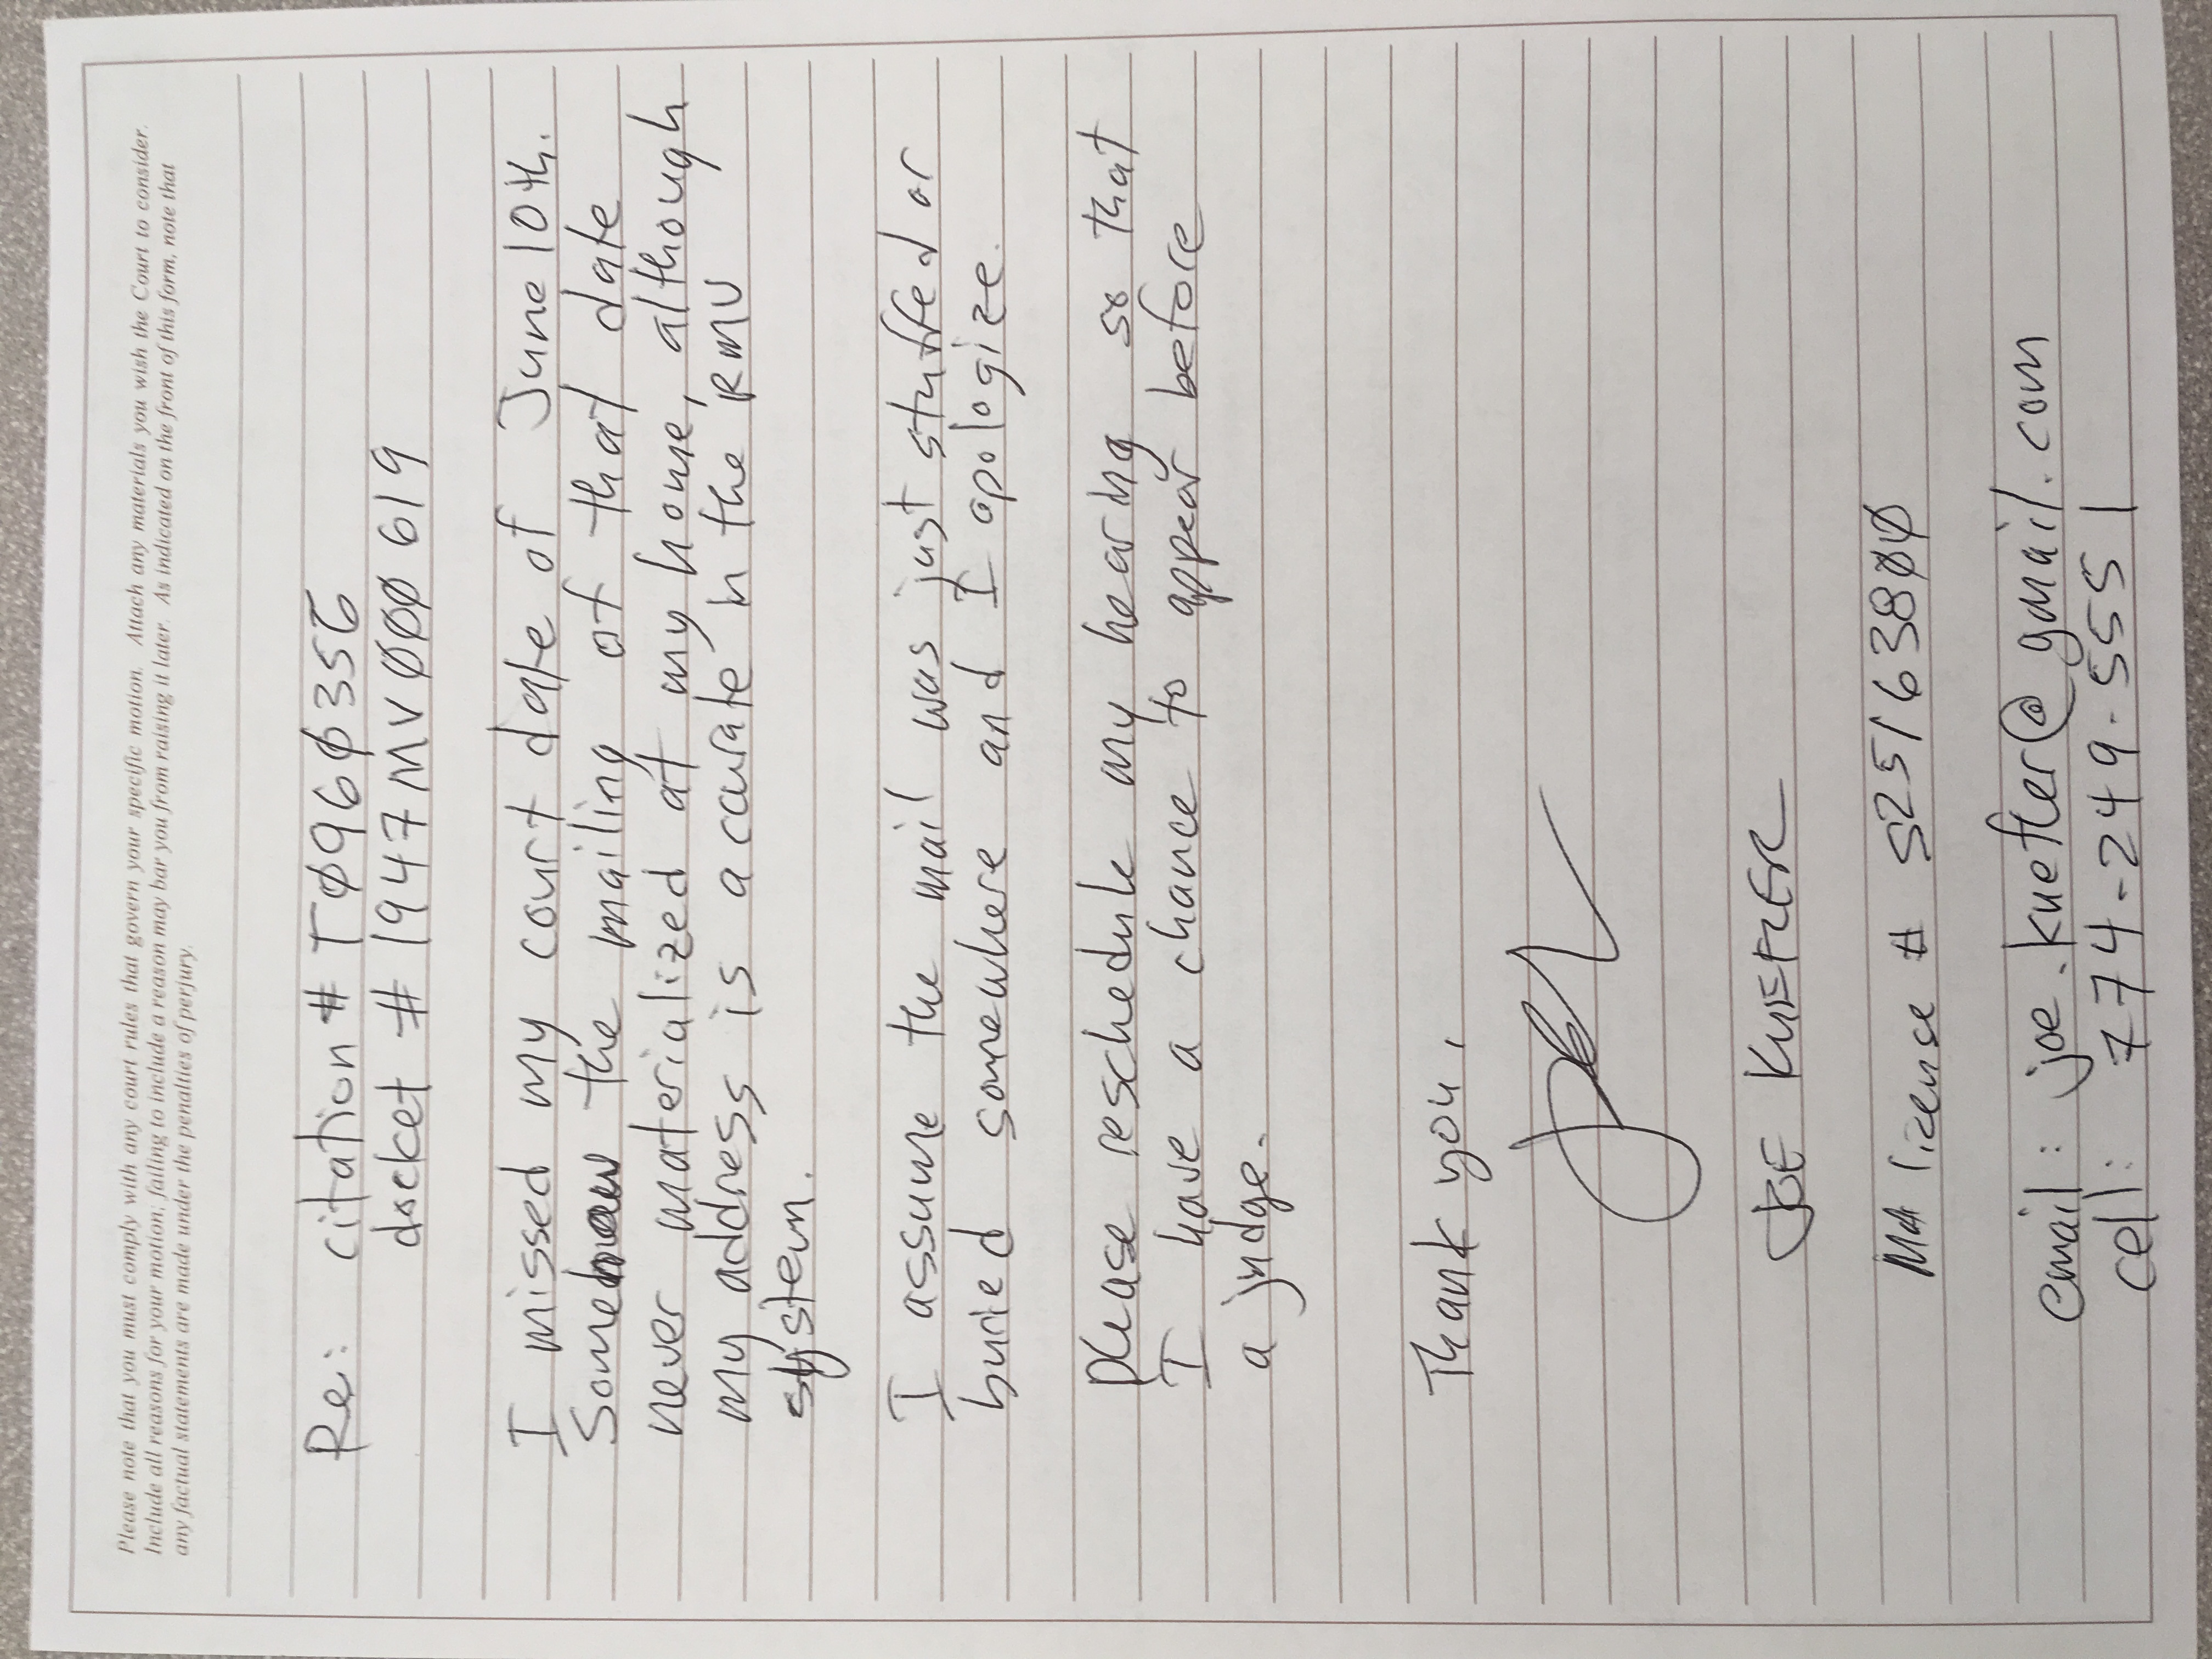 Please note that you must comply with any court rules that govern your specific motion. Attach any materials you wish the Court to consider.
Include all reasons for your motion; failing to include a reason may bar you from raising it later. As indicated on the front of this form, note that
any factual statements are made under the penalties of perjury.
Re: citation # TØ96Ø356
docket # 1947MVØØØ619
I missed my court date of June 10th.
Somehow the mailing of that date
never materialized at my home, although
my address is acurate in the RMV
system.
I assume the mail was just stuffed or
buried somewhere and I apologize.
Please reschedule my hearing so that
I have a chance to appear before
a judge.
Thank you,
JOE KUEFLER
MA license # S251638ØØ
email: joe.kuefler@gmail.com
cell: 774-249-5551